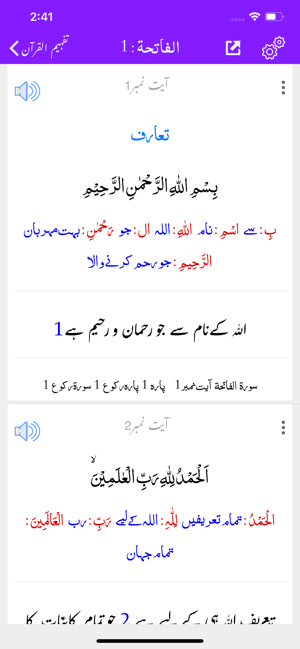 2:41
تفہیم القرآن
الفاتحة : 1
آیت نمبر1
تعارف
بِسْمِ اللهِ الرَّحْمٰنِ الرَّحِيْمِ
بِ: سے اسْمِ: نام اللهِ: اللہ ال: جو رَحْمٰنِ: بہت مہربان
الرَّحِيمِ: جو رحم کرنے والا
اللہ کے نام سے جو رحمان و رحیم ہے 1
سورة الفاتحة آیت نمبر 1 پارہ 1 پارہ رکوع 1 سورۃ رکوع 1
آیت نمبر2
اَلْحَمْدُ لِلّٰهِ رَبِّ الْعٰلَمِيْنَ ۙ
الْحَمْدُ: تمام تعریفیں لِلّٰهِ: اللہ کے لیے رَبِّ: رب الْعَالَمِينَ:
تمام جہان
تعریف اللہ ہی کے لیے ہے 2 جو تمام کائنات کا